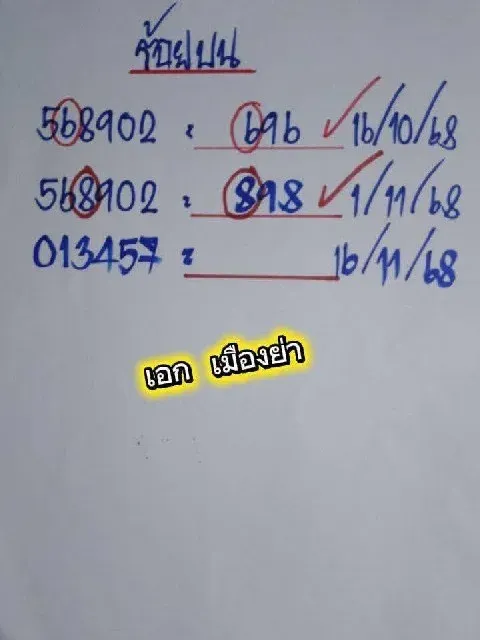 ร้อยบน
568902 = 696 ✓ 16/10/68
568902 = 898 ✓ 1/11/68
013457 = 16/11/68
เอก เมืองย่า